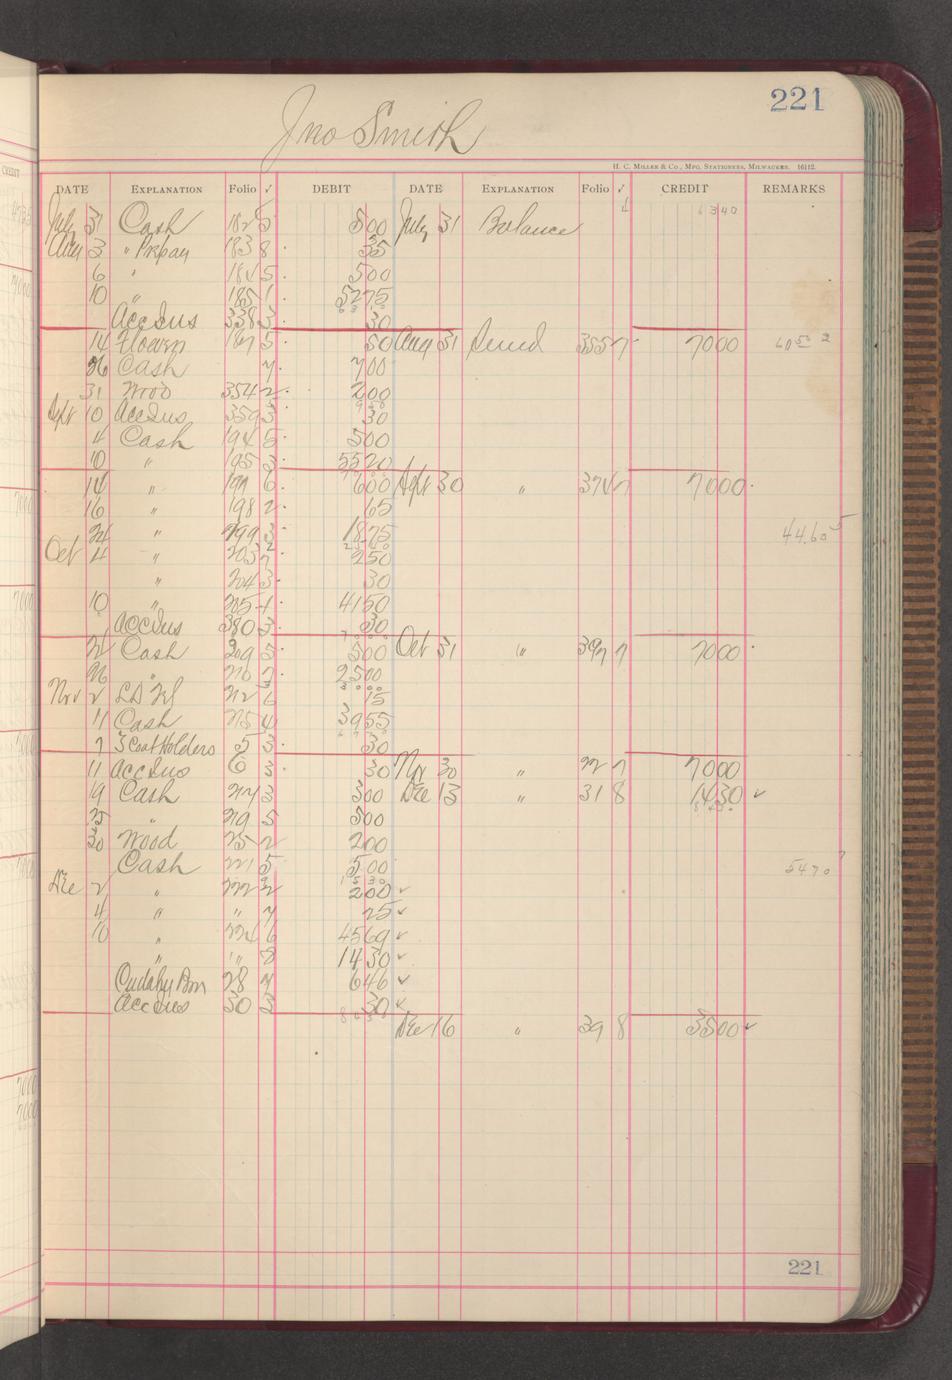 221
Jno Smith
H. C. MILLER & CO., MFG. STATIONERS, MILWAUKEE. 16112.
DATE EXPLANATION Folio ✓ DEBIT DATE EXPLANATION Folio ✓ CREDIT REMARKS
July 31 Cash 182 5 500 July 31 Balance 6340
Aug 3 " Prepay 183 8 35
6 " 184 5 500
10 " 185 1 5275
Acc Ins 338 3 30
14 187 5 50 Aug 31 355 7 7000
26 Cash 7 700
31 Wood 354 2 200
Sept 10 Acc Ins 359 3 30
4 Cash 194 5 500
10 " 195 3 5520
14 " 6 600 Sept 30 " 374 7 7000
16 " 198 2 65
24 " 199 3 1875 4460
Oct 4 " 203 7 250
" 204 3 30
10 " 205 1 4150
Acc Ins 380 3 30
Cash 209 5 500 Oct 31 " 397 7 7000
26 " 210 7 2500
Nov 2 212 6 15
11 Cash 215 4 3955
7 3 Coat Holders 5 3 30
11 Acc Ins 6 3 30 Nov 30 " 22 7 7000
19 Cash 217 3 300 Dec 13 " 31 8 1430 ✓
25 " 219 5 500
30 Wood 25 2 200
Cash 221 5 500 5470
Dec 2 " 222 2 200 ✓
4 " " 7 25 ✓
10 " 224 6 4569 ✓
" " 8 1430 ✓
Cudahy Bros 28 7 646 ✓
Acc Ins 30 3 30 ✓
Dec 16 " 39 8 3500 ✓
221